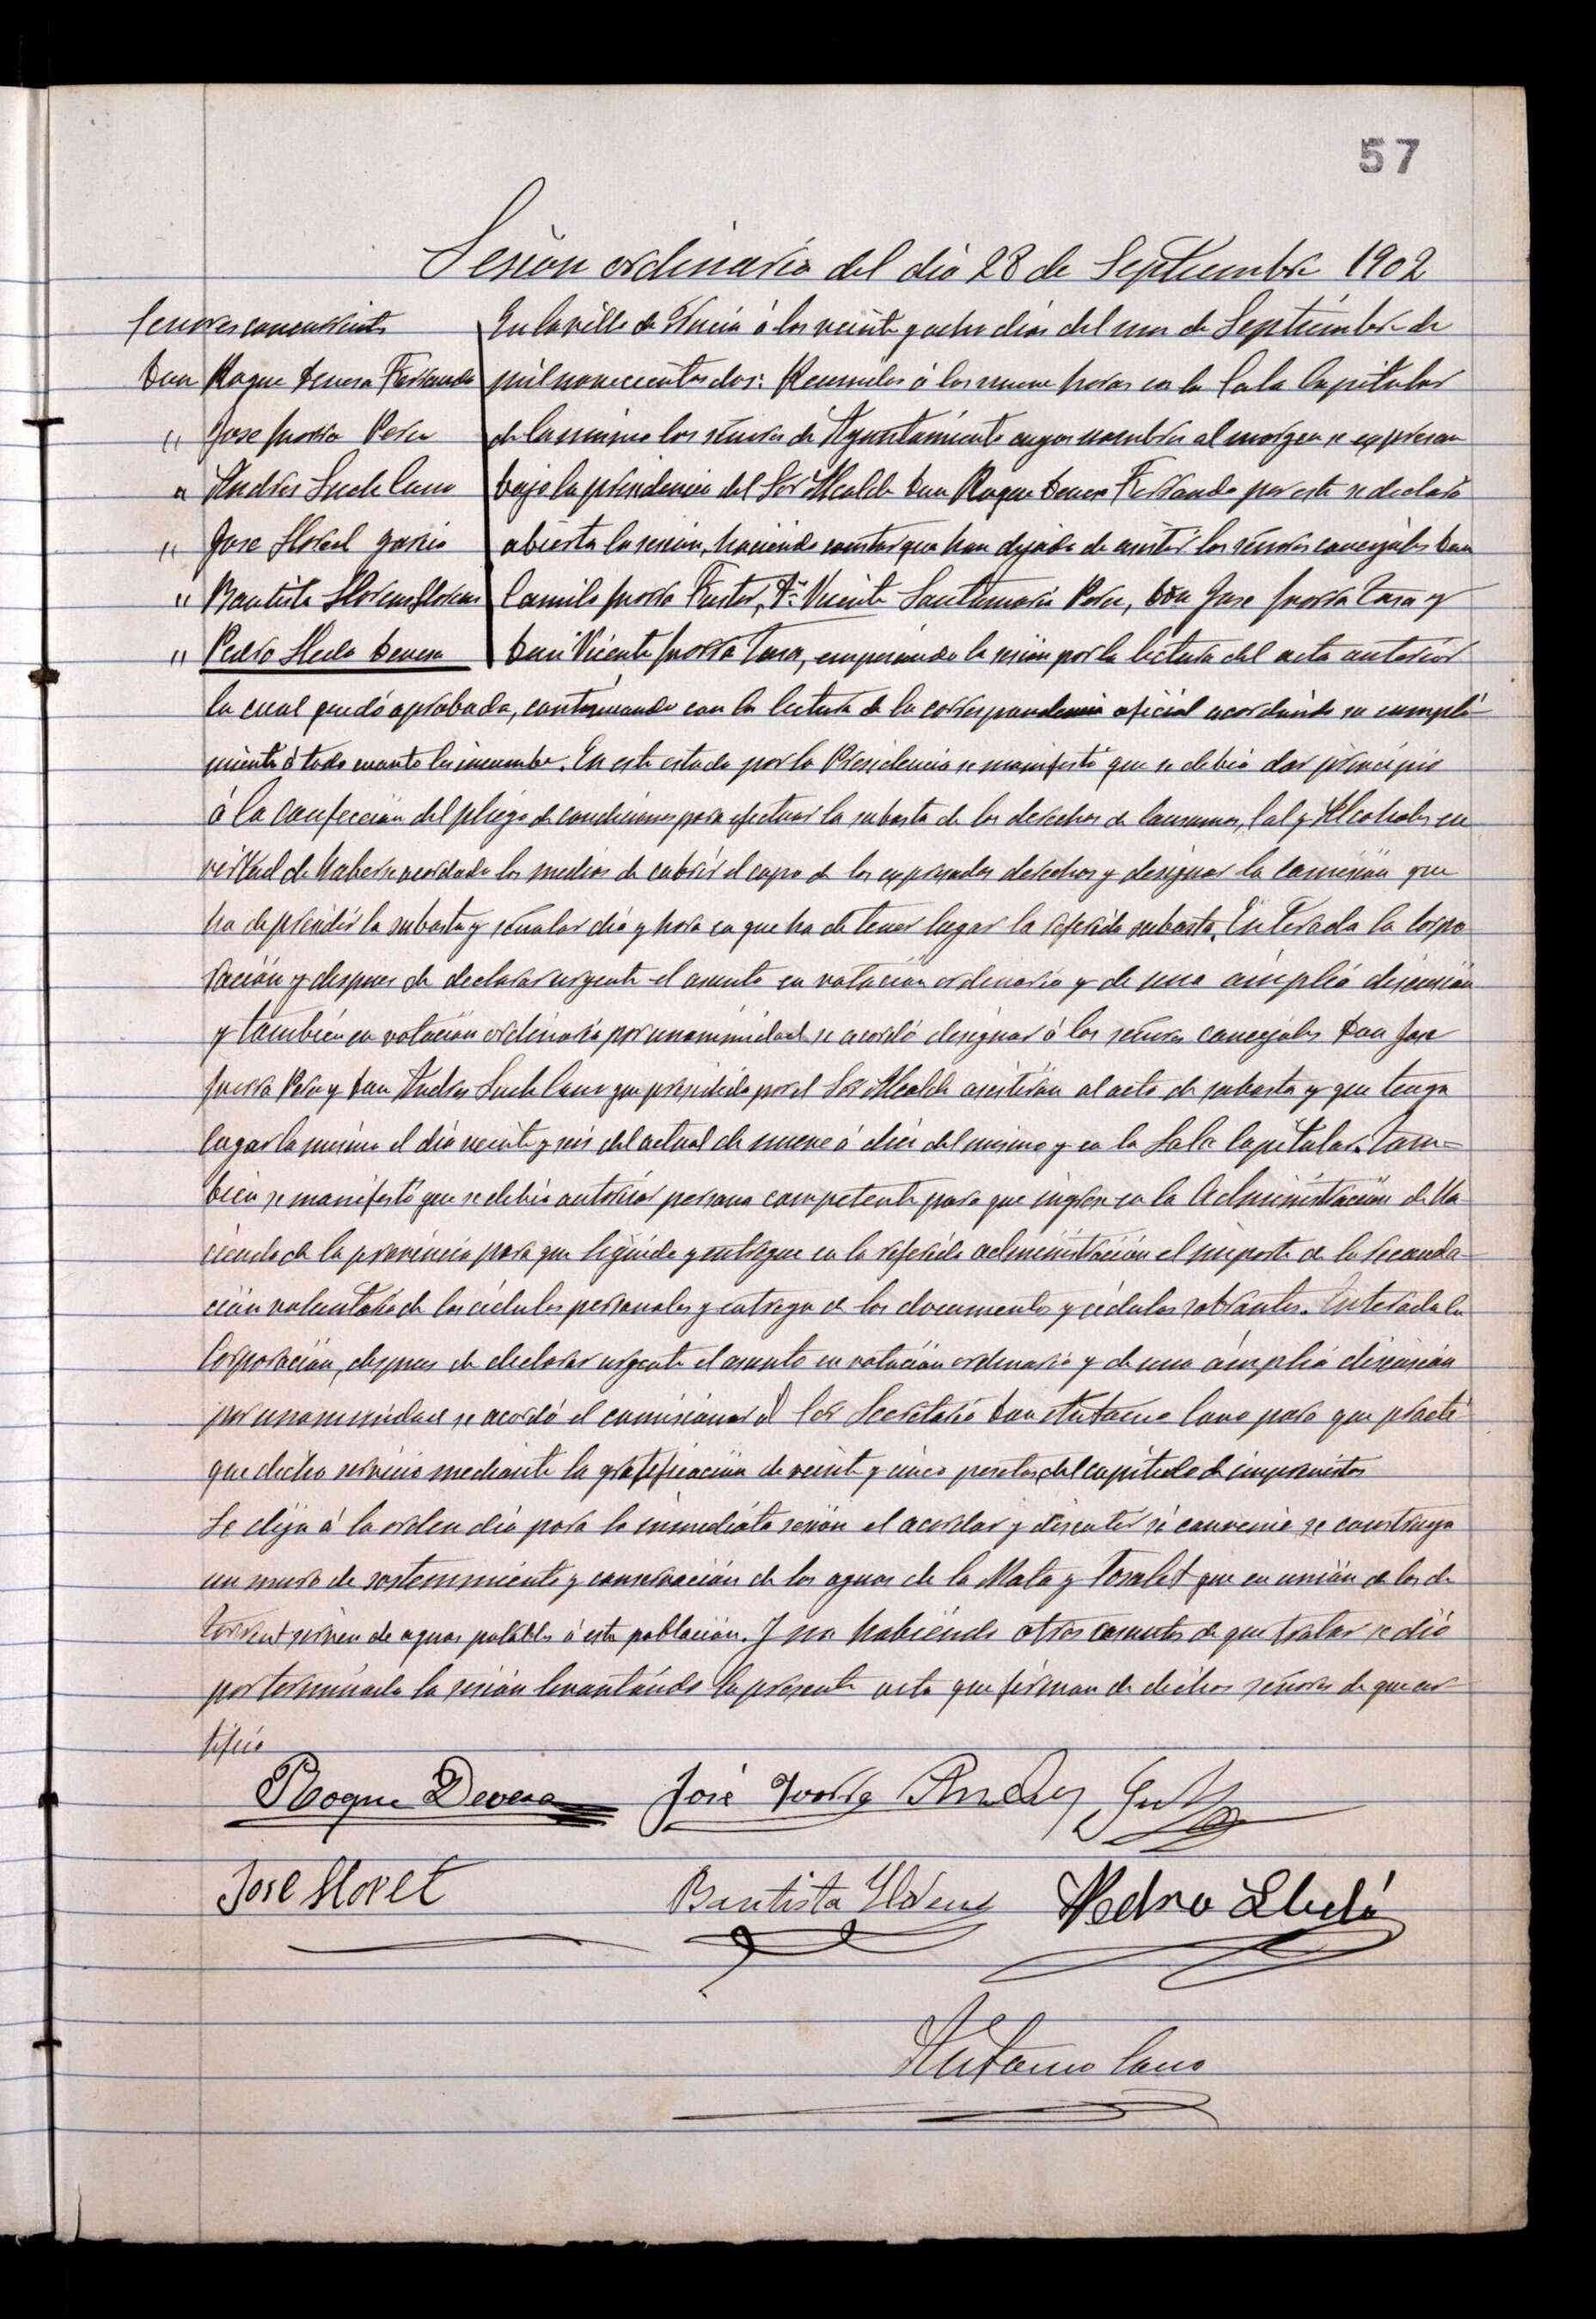 57
Sesion ordinaria del dia 28 de Septiembre 1902
Señores concurrentes
Don Roque Devesa Ferrando
" Jose Ivorra Perez
" Andres Such Cano
" Jose Lloret Garcia
" Bautista Llorens Llorens
" Pedro Lledo Devesa
En la villa de á los veinte y ocho dias del mes de Septiembre de
mil novecientos dos: Reunidos á las nueve horas en la Sala Capitular
de la misma los señores de Ayuntamiento cuyos nombres al margen se expresan
bajo la presidencia del Sor Alcalde Don Roque Devesa Ferrando por este se declaró
abierta la sesion, haciendo constar que han dejado de asistir los señores concejales Don
Camilo Ivorra Fuster, Dn Vicente Santamaria Perez, Don Jose Ivorra y
Don Vicente Ivorra, empezando la sesion por la lectura del acta anterior
la cual quedó aprobada, continuando con la lectura de la correspondencia oficial acordando su cumpli-
miento á todo cuanto les incumbe. En este estado por la Presidencia se manifestó que se debia dar principio
á la confeccion del pliego de condiciones para efectuar la subasta de los derechos de Consumos, Sal y Alcoholes en
virtud de haberse acordado los medios de cubrir el cupo de los expresados derechos y designar la comision que
ha de presidir la subasta y señalar dia y hora en que ha de tener lugar la referida subasta. Enterada la Corpo
racion y despues de declarar urgente el asunto en votacion ordinaria y de una amplia discusion
y tambien en votacion ordinaria por unanimidad se acordó designar á los señores concejales Don Jose
Ivorra Perez y Don Andres Such Cano que presidido por el Sor Alcalde asistiran al acto de subasta y que tenga
lugar la misma el dia veinte y seis del actual de nueve á diez del mismo y en la Sala Capitular. Tam=
bien se manifestó que se debia autorizar persona competente para que ingrese en la Administracion de Ha
cienda de la provincia para que liquide y entregue en la referida administracion el importe de la recauda
cion voluntaria de las cédulas personales y entrega de los documentos y cédulas sobrantes. Enterada la
Corporacion, despues de declarar urgente el asunto en votacion ordinaria y de una ámplia discusion
por unanimidad se acordó el comisionar al Sor Secretario Don Antonio Cano para que practi
que dicho servicio mediante la gratificacion de veinte y cinco pesetas del capitulo de imprevistos
Se dija á la orden dia para la inmediata sesion el acordar y discutir si convenia se construya
un muro de sostenimiento y conservacion de las aguas de la Mata y Tosalet que en union de las de
Torrent sirven de aguas potables á esta poblacion. Y no habiendo otros asuntos de que tratar se dió
por terminada la sesion levantando la presente acta que firman de dichos señores de que cer
tifico
Roque Devesa José Ivorra Andres Such
Jose Lloret Bautista Llorens Pedro Lledó
Antonio Cano